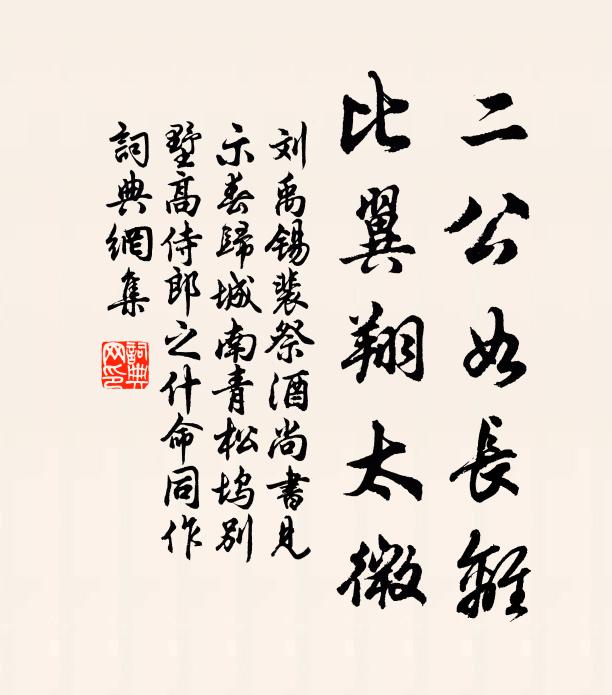 二公如長離
比翼翔太微
刘禹锡裴祭酒尚書見
示春歸城南青松坞别
墅高侍郎之什命同作
詞典網集
詞典网印